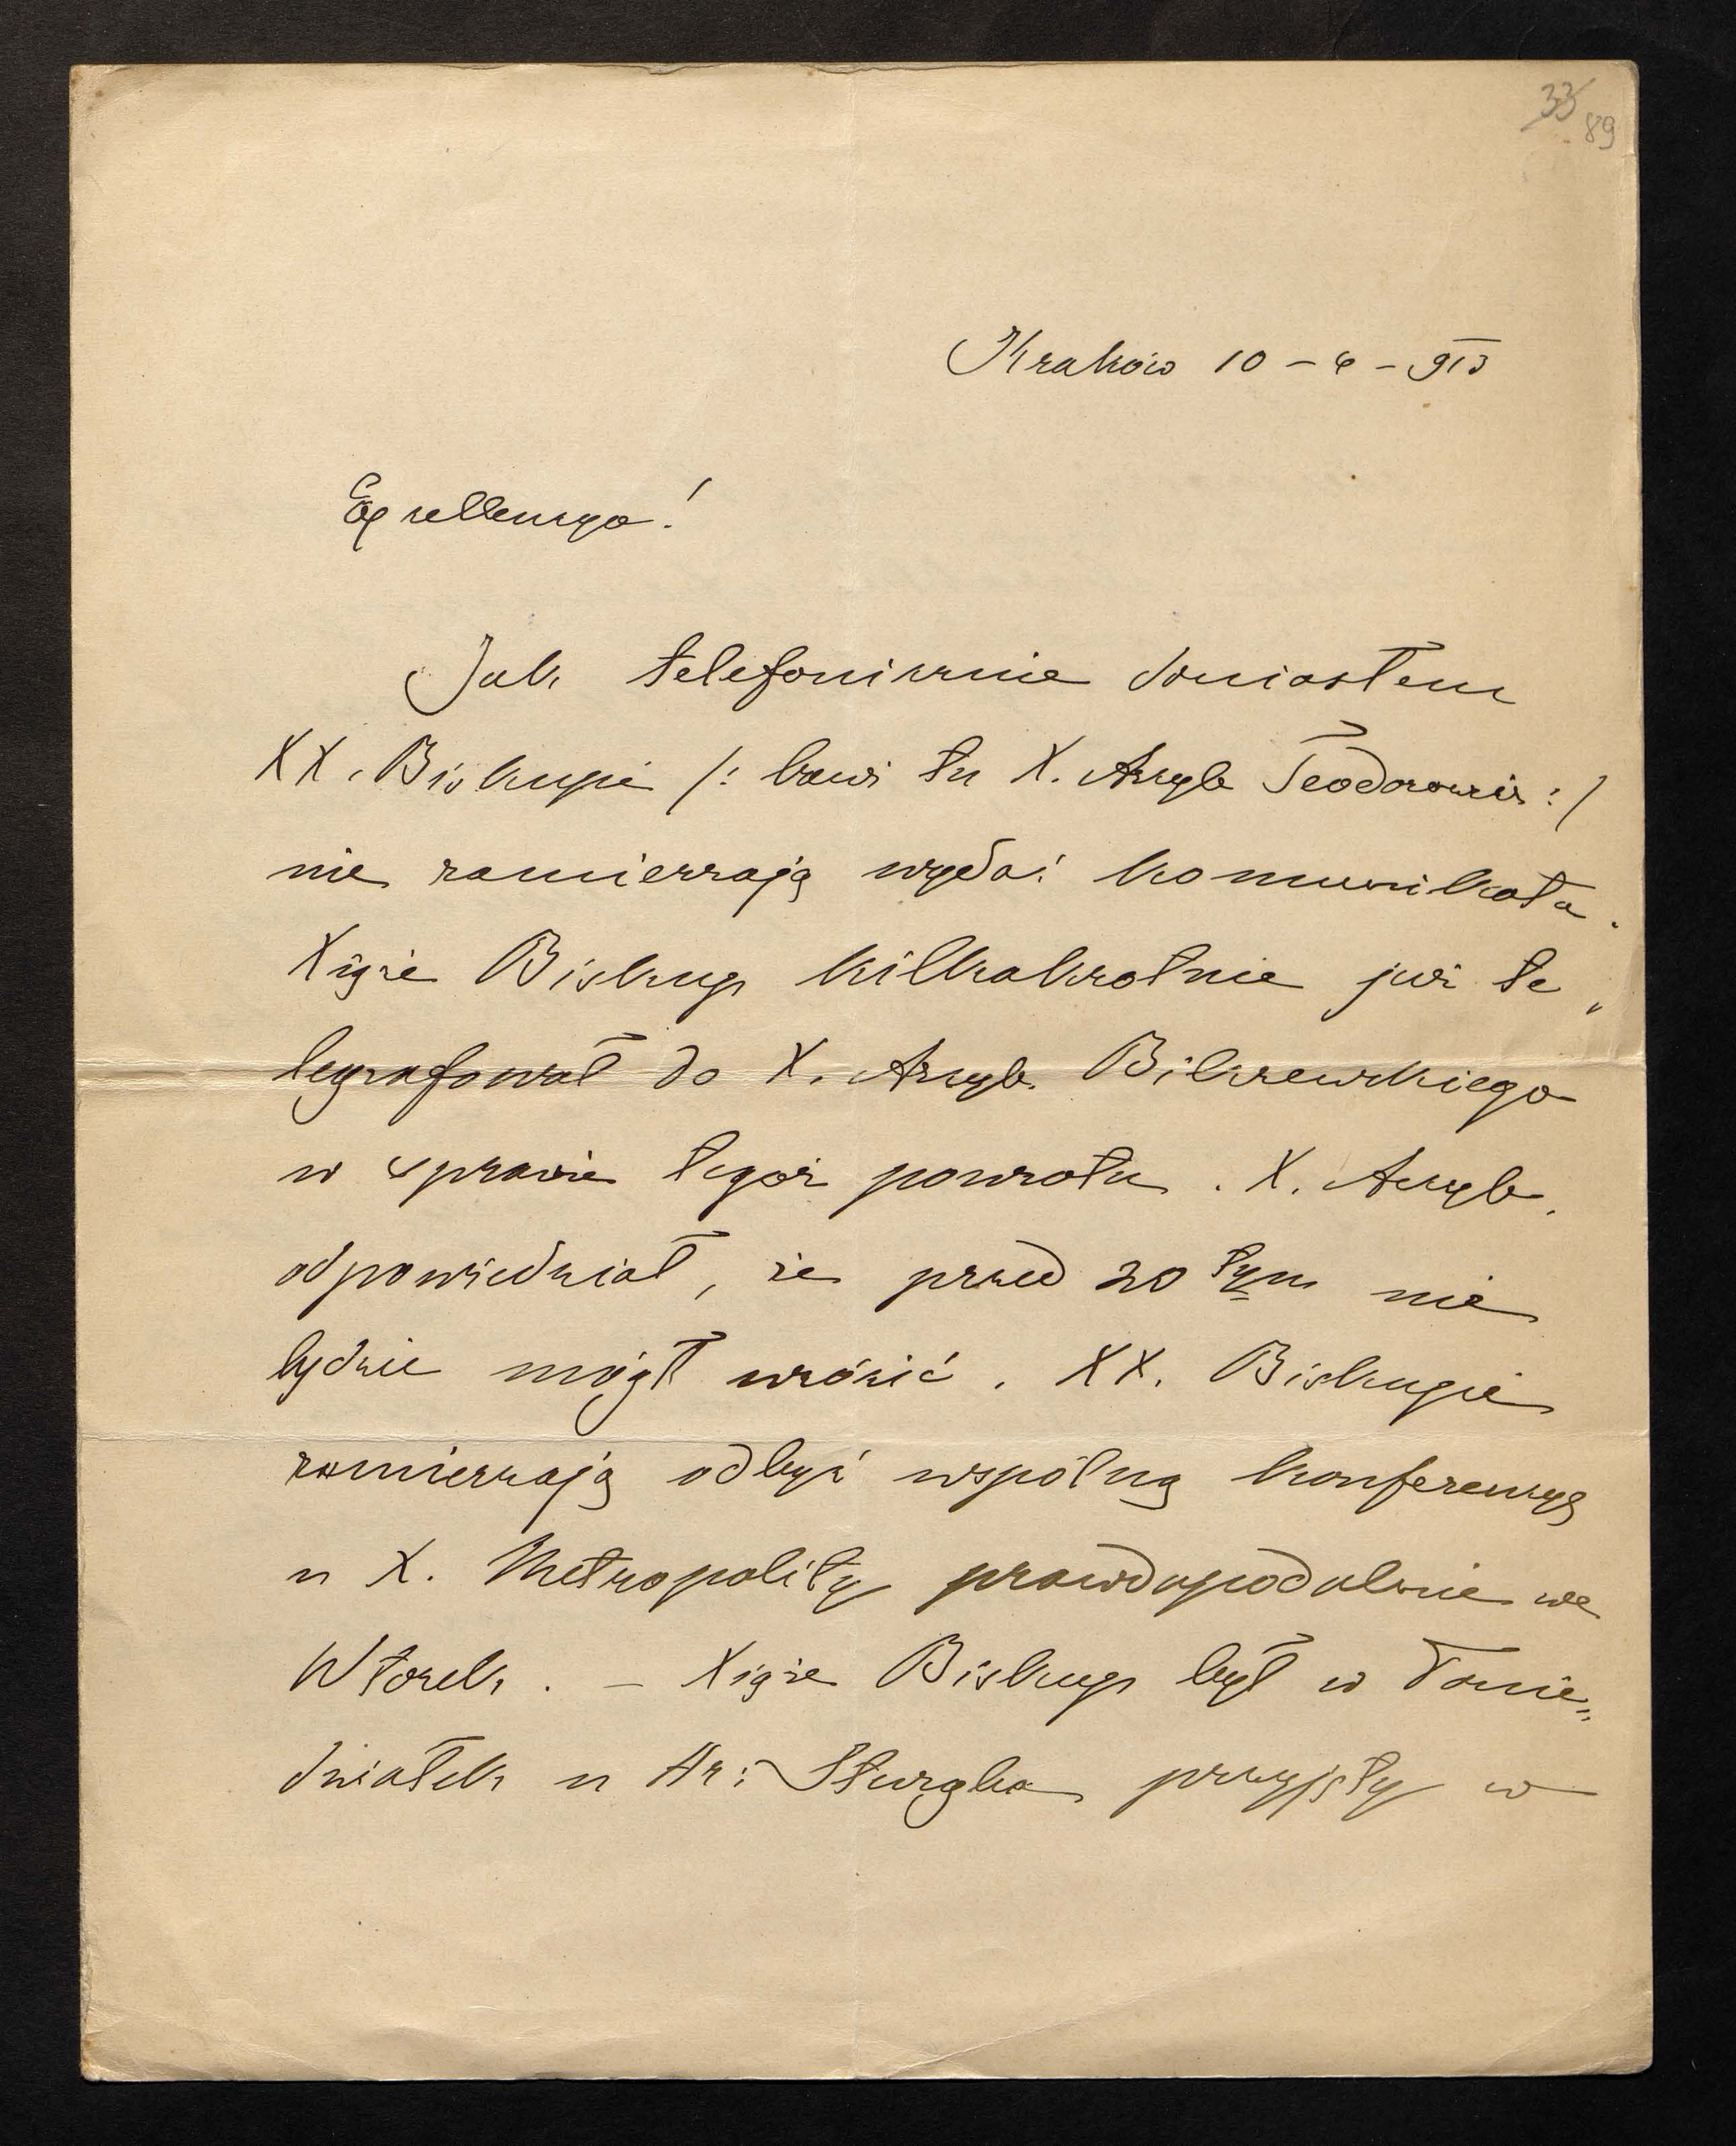 33 89
Kraków 10 – 4 – 913
Excellencyo!
Jak telefonicznie doniosłem
XX. Biskupi /: bawi tu X. Arcyb Teodorowicz :/
nie zamierzają wydać komunikatu.
Xiąże Biskup kilkakrotnie już te„
legrafował do X. Arcyb. Bilczewskiego
w sprawie tegoż powrotu. X. Arcyb.
odpowiedział, że przed 20 tym nie
będzie mógł wrócić. XX. Biskupi
zamierzają odbyć wspólną konferencyę
u X. Metropolity prawdopodobnie we
Wtorek. – Xiąże Biskup był w Ponie„
działek u Hr: Sturgka przyjęty w